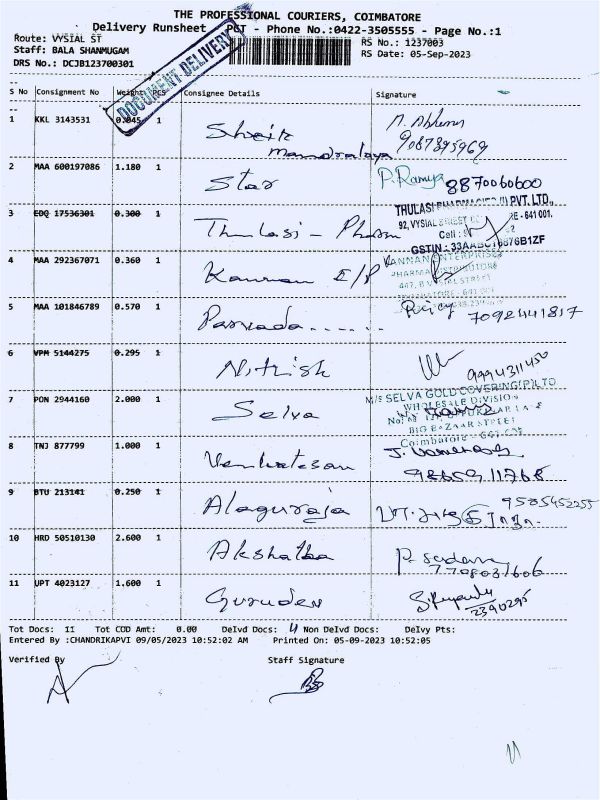 THE PROFESSIONAL COURIERS, COIMBATORE
Delivery Runsheet PCT - Phone No.:0422-3505555 - Page No.:1
Route: VYSIAL ST
RS No.: 1237003
Staff: BALA SHANMUGAM
RS Date: 05-Sep-2023
DRS No.: DCJB123700301
DOCUMENT DELIVERY
S No Consignment No Weight PCS Consignee Details Signature
1 KKL 3143531 0.045 1 Sheik
9087395969
2 MAA 600197086 1.180 1 Star P. Ramya 8870060600
THULASI PHARMACIES (I) PVT. LTD.,
3 EDQ 17536301 0.300 1 Thulasi - Pharm
92, VYSIAL STREET RE - 641 001.
Cell :
GSTIN : 33AABCT6676B1ZF
4 MAA 292367071 0.360 1 Kannan E/P
KANNAN ENTERPRISES
PHARMA DISTRIBUTORS
5 MAA 101846789 0.570 1 7092441817
6 VPM 5144275 0.295 1 Nitish 9994311450
7 PON 2944160 2.000 1 Selva
M/s SELVA GOLD COVERING (P) LTD
WHOLESALE DIVISION
BIG BAZAAR STREET
Coimbatore - 641 001
8 TNJ 877799 1.000 1 Venkatesan
9 BTU 213141 0.250 1 Alaguraja 9585452255
10 HRD 50510130 2.600 1 Akshatha
11 UPT 4023127 1.600 1 Gurudev
2390295
Tot Docs: 11 Tot COD Amt: 0.00 Delvd Docs: 11 Non Delvd Docs: Delvy Pts:
Entered By :CHANDRIKAPVI 09/05/2023 10:52:02 AM Printed On: 05-09-2023 10:52:05
Verified By Staff Signature